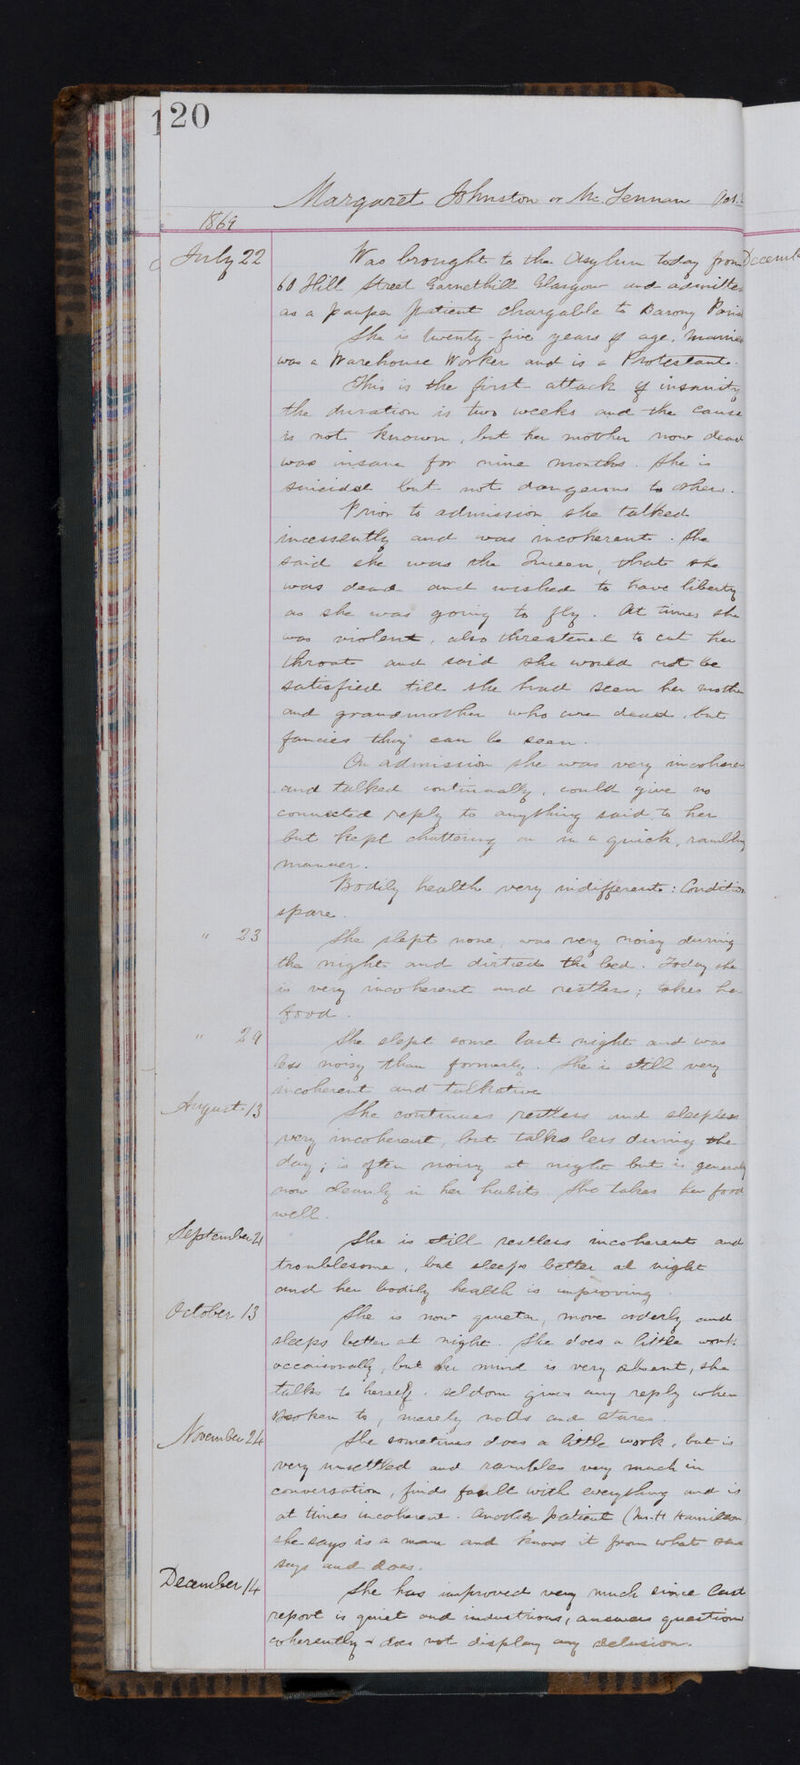 120
Margaret Johnston or McLennan
1869
July 22 Was brought to the Asylum today from
60 Hill Street Garnethill Glasgow and admitted
as a pauper patient chargable to Barony Paris
She is twenty-five years of age, married
was a Warehouse Worker and is a Protestant.
This is the first attack of insanity
the duration is two weeks and the cause
is not known, but her mother now dead
was insane for nine months. She is
suicidal but not dangerous to others.
Prior to admission she talked
incessently and was incoherent. She
said she was the Queen, that she
was dead and wished to have liberty
as she was going to fly. At times she
was violent, also threatened to cut her
throat and said she would not be
satisfied till she had seen her mother
and grandmother who are dead, but
fancies they can be seen.
On admission she was very incoheren
and talked continually, could give no
connected reply to anything said to her
but kept chattering on in a quick, rambling
manner.
Bodily health very indifferent: Condition
spare.
" 23 She slept none, was very noisy during
the night and dirtied the bed. Today she
is very incoherent and restless; takes her
food.
" 29 She slept some last night and was
less noisy than formerly. She is still very
incoherent and talkative
August 13 She continues restless and sleepless
very incoherent, but talks less during the
day; is often noisy at night but is generally
now cleanly in her habits. She takes her food
well.
September 21 She is still restless incoherent and
troublesome, but sleeps better at night
and her bodily health is improving.
October 13 She is now quieter, more orderly and
sleeps better at night. She does a little work
occaisonally, but her mind is very absent, she
talks to herself, seldom gives any reply when
spoken to, merely nods and stares.
November 24 She sometimes does a little work, but is
very unsettled and rambles very much in
conversation, finds fault with everything and is
at times incoherent. Another patient (Mrs H Hamilton)
she says is a man and knows it from what she
says and does.
December 14 She has improved very much since last
report is quiet and industrious, answers question
coherently & does not display any delusion.
Decemb